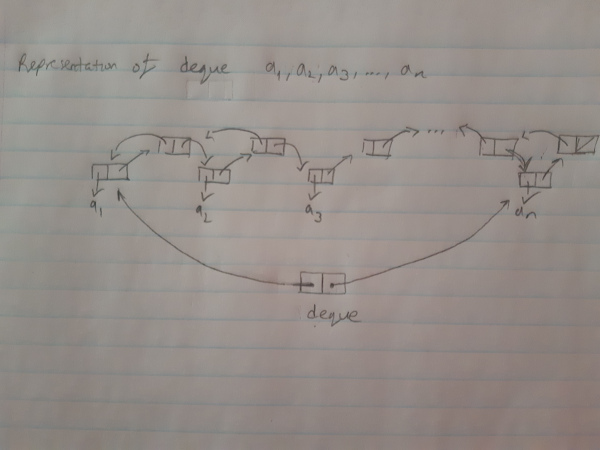 Representation of deque a1, a2, a3, ..., an
...
a1 a2 a3 an
deque